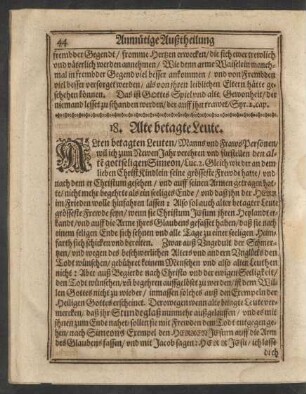 44 Anmütige Außtheilung
frembder Gegendt / fromme Hertzen erwecken / die sich ewer trewlich
und väterlich werden annehmen / Wie denn arme Waiselein manch-
mal in frembder Gegend viel besser ankommen / und von Frembden
viel besser versorget werden / als von jhren leiblichen Eltern hätte ge-
schehen können. Das ist Gottes Spiel und alte Gewonheit / der
niemand lesset zu schanden werden / der auff jhn trawet. Syr. 2. cap.
18. Alte betagte Leute.
ALten betagten Leuten / Manns und Fraws Personen /
wil ich zum Newen Jahr verehren und fürstellen den al-
ten gottseligen Simeon / Luc. 2. Gleich wie der an dem
lieben Christ Kindlein seine grösseste Frewde hatte / und
nach dem er Christum gesehen / und auff seinen Armen getragen hat-
te / nichts mehr begehrte als ein seeliges Ende / und daß jhn der HErr
im Frieden wolle hinfahren lassen: Also sol auch alter betagter Leute
grösseste Frewde seyn / wenn sie Christum JEsum jhren Heyland er-
kandt / und auff die Arme jhres Glaubens gefasset haben / daß sie nach
einem seligen Ende sich sehnen und alle Tage zu einer seeligen Heim-
farth sich schicken und bereiten. Zwar auß Ungedult der Schmer-
tzen / und wegen des beschwerlichen Alters und andern Unglücks den
Todt wünschen / gebühret keinem Menschen und also alten Leuthen
nicht: Aber auß Begierde nach Christo und der ewigen Seeligkeit /
den Todt wünschen / uñ begehren auffgelöset zu werden / ist dem Wil-
len Gottes nicht zu wieder / inmassen solches auß den Exempeln der
Heiligen Gottes erscheinet. Derowegen wenn alte betagte Leute ver-
mercken / daß jhr Stundtglaß nunmehr außgelauffen / und es mit
jhnen zum Ende nahet / sollen sie mit Frewden dem Todt entgegen ge-
hen / nach Simeons Exempel den HErren JEsum auff die Arm
des Glaubens fassen / und mit Jacob sagen: HErr JEsu / ich lasse
dich